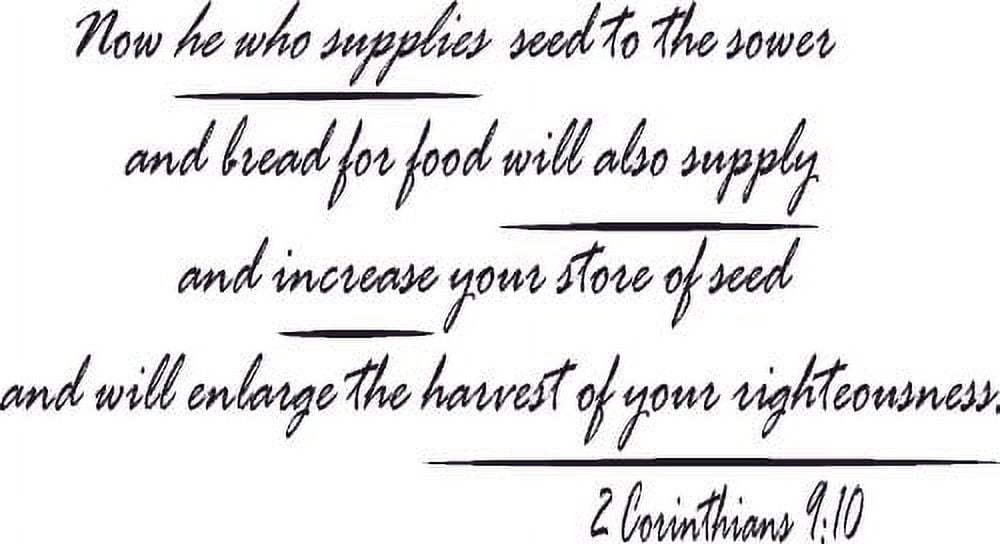 Now he who supplies seed to the sower
and bread for food will also supply
and increase your store of seed
and will enlarge the harvest of your righteousness.
2 Corinthians 9:10